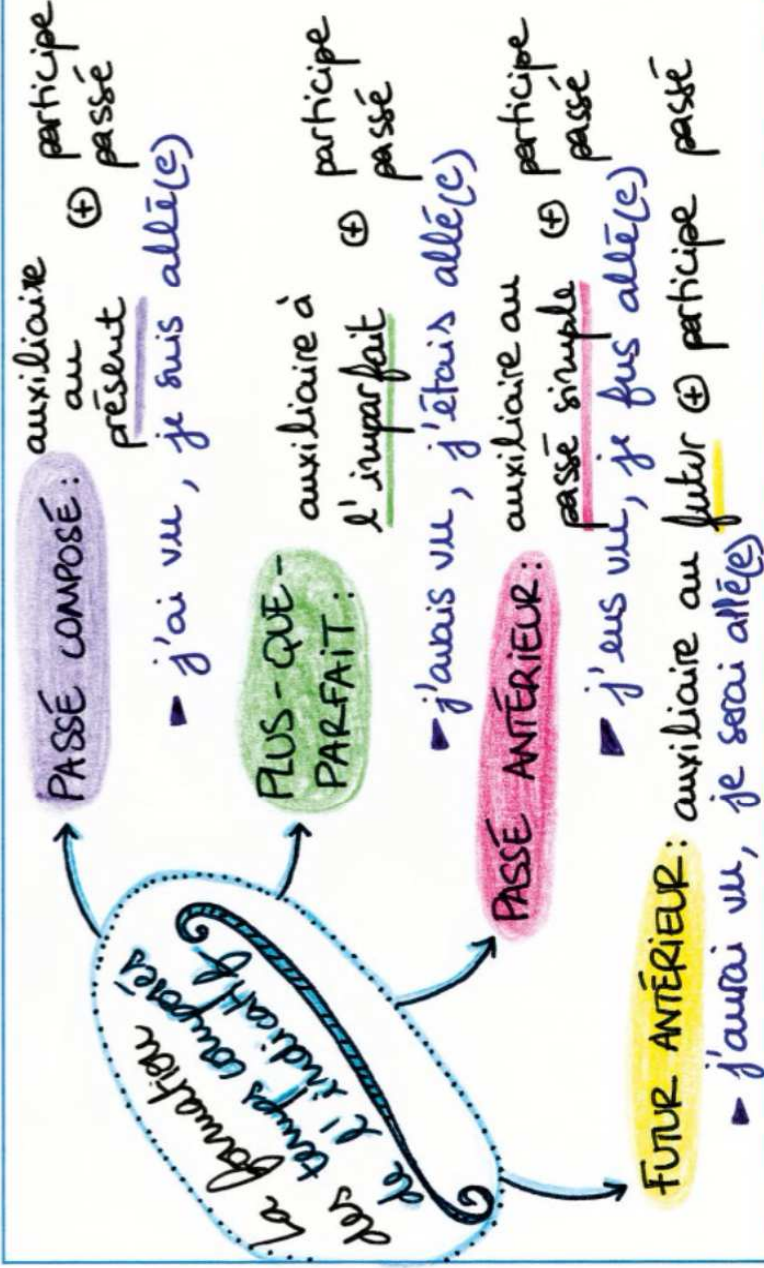 La formation
des temps composés
de l'indicatif
PASSÉ COMPOSÉ :
auxiliaire
au
présent
+ participe
passé
j'ai vu, je suis allé(e)
PLUS-QUE-
PARFAIT :
auxiliaire à
l'imparfait
+ participe
passé
j'avais vu, j'étais allé(e)
PASSÉ ANTÉRIEUR :
auxiliaire au
passé simple
+ participe
passé
j'eus vu, je fus allé(e)
FUTUR ANTÉRIEUR : auxiliaire au futur + participe passé
j'aurai vu, je serai allé(e)